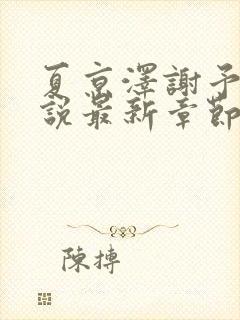 夏京澤謝予
說最新章節
陳摶